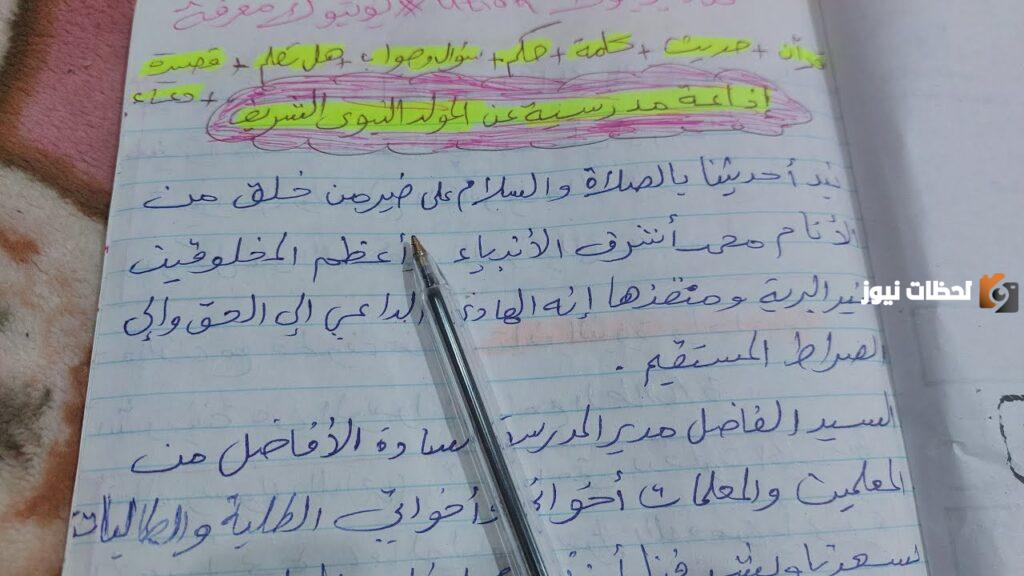 يوتيوك معرفة
قرآن + حديث + كلمة + حكم + سؤال وجواب + هل تعلم + قصيرة
+ دعاء
إذاعة مدرسية عن المولد النبوي الشريف
نبدأ حديثنا بالصلاة والسلام على خير من خلق من
الأنام محمد أشرف الأنبياء أعظم المخلوقين
خير البرية ومنقذها إنه الهادي الداعي إلي الحق وإلي
الصراط المستقيم .
السيد الفاضل مدير المدرسة السادة الأفاضل من
المعلمين والمعلمات أخواني وأخواتي الطلبة والطالبات
لحظات نيوز